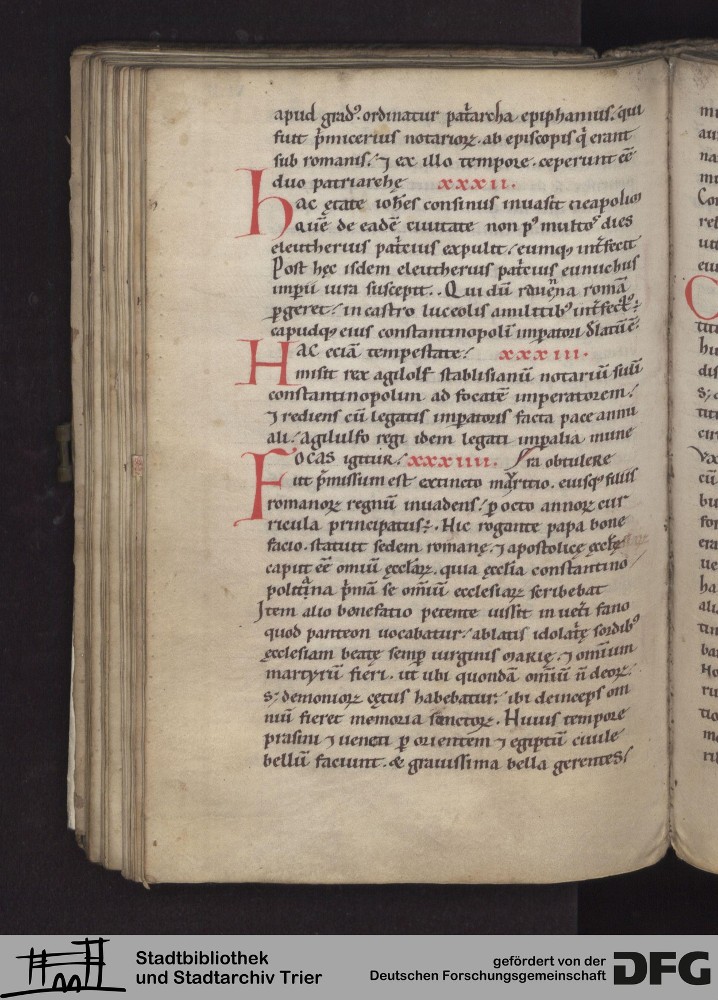 apud grad᷒. ordinatur pat̄archa epiphanius. qui
fuit p̄micerius notarioꝝ. ab episcopis q̇ erant
sub romanis. ⁊ ex illo tempore. ceperunt ēē
duo patriarchę xxxii.
hac ętate ioh̄es consinus inuasit neapolim
quē de eadē ciuitate non p᷒ multos dies
eleutherius pat̄cius expulit. eumq; int̄fecit
Post hęc isdem eleutherius pat̄cius eunuchus
imperii iura suscepit. Qui dū rauēna romā
ꝑgeret. in castro luceolis a militib᷒ int̄fect᷒ ē
capudq; eius constantinopoli imꝑatori dlatū ē.
HAC eciā tempestate. xxxiii.
misit rex agilolf stablisianū notariū suū
constantinopolim ad focatē imperatorem.
⁊ rediens cū legatis imꝑatoris facta pace annu
ali. Agilulfo regi idem legati imꝑialia mune
FOCAS igitur. xxxiiii. ra obtulere
ut p̄missum est extincto mauritio. eiusq; filiis
romanoꝝ regnū inuadens. ꝑ octo annoꝝ cur
ricula principatus ē. Hic rogante papa bone
facio. statuit sedem romanę. ⁊ apostolicę ęcclę
caput ēē omiū ęccl̄aꝝ. quia ęccl̄ia constantino
politana p̄mā se om̄iū ecclesiaꝝ scribebat
Item alio bonefatio petente iussit in uet̄i fano
quod panteon uocabatur. ablatis idolatrię sordib᷒
ęcclesiam beatę semꝑ uirginis MARIĘ. ⁊ omnium
martyrū fieri. ut ubi quondā om̄iū n̄ deoꝝ.
s; demonioꝝ cętus habebatur. ibi deinceps om
niū fieret memoria sanctoꝝ. Huius tempore
prasini ⁊ ueneti ꝑ orientem ⁊ egiptū ciuile
bellū faciunt. & grauissima bella gerentes
Stadtbibliothek
und Stadtarchiv Trier
gefördert von der
Deutschen Forschungsgemeinschaft
DFG